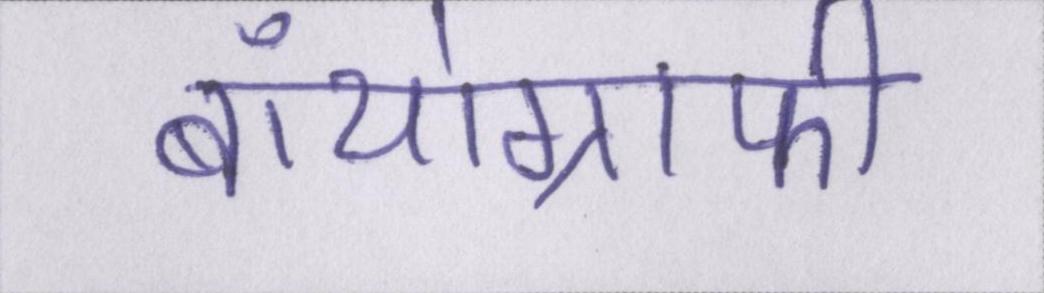 बॉयोग्राफी